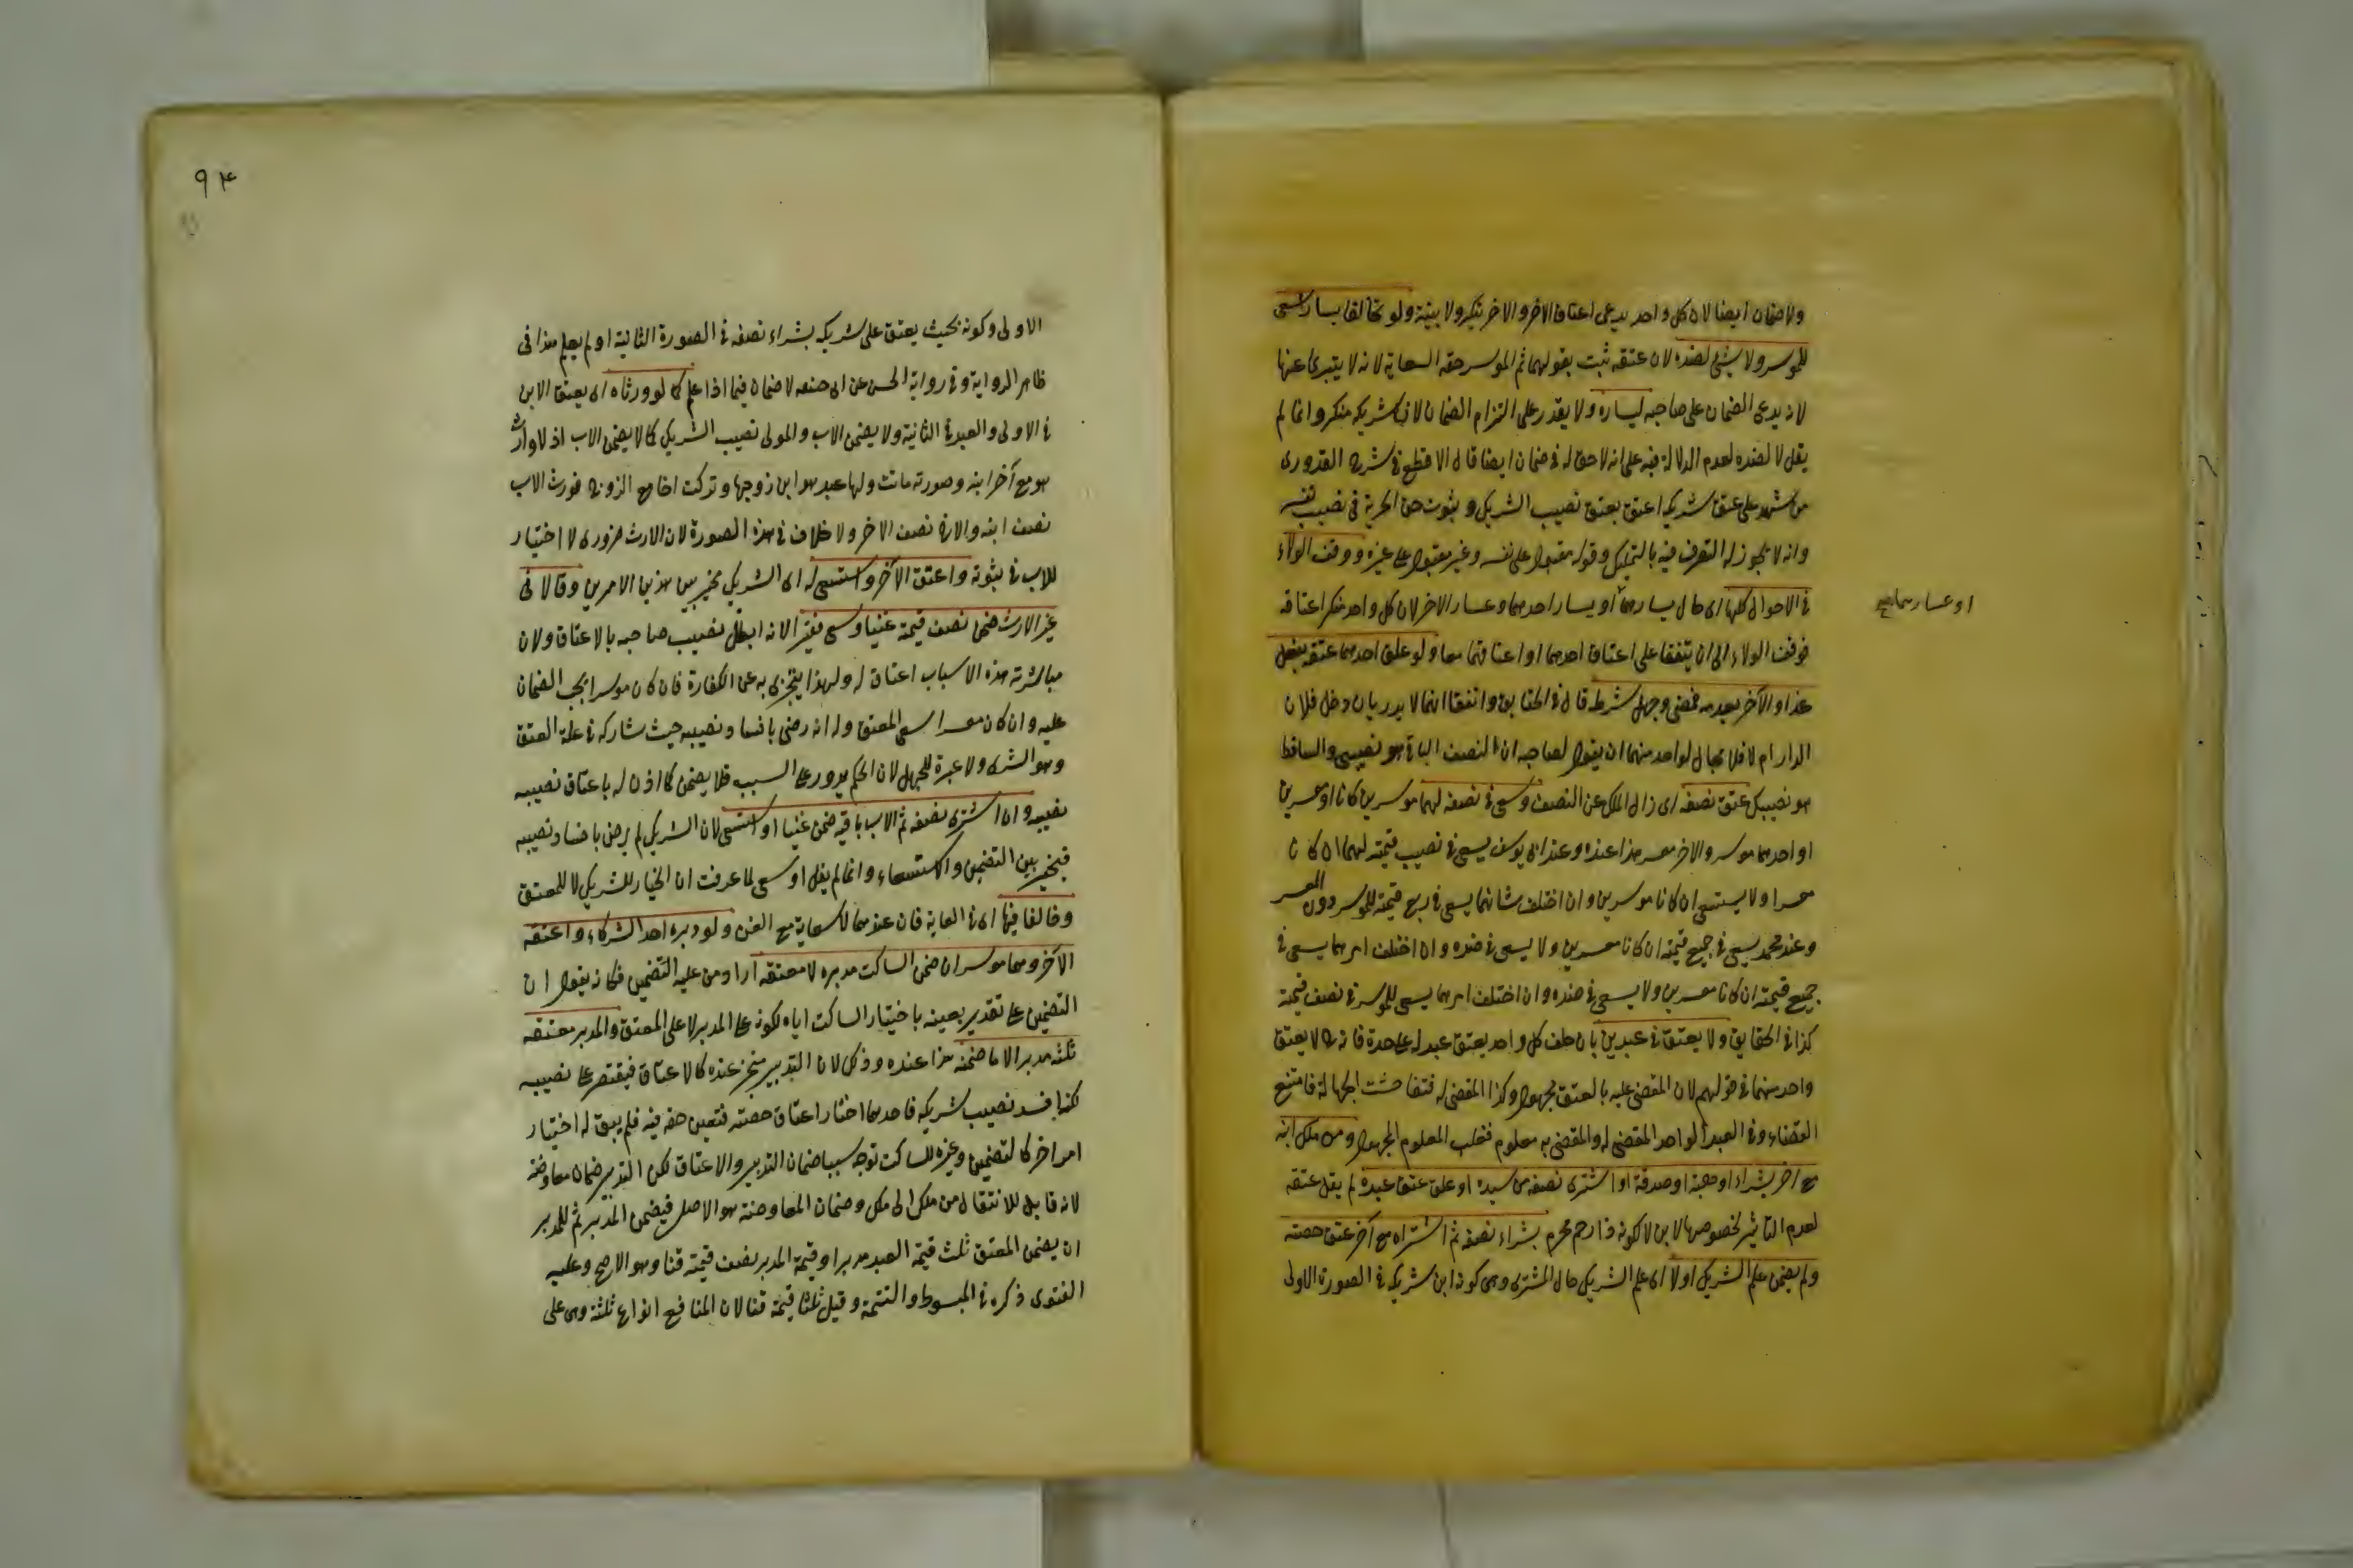 ولا ضمان ايضا لان كل واحد يدعى اعتاق الاخر والاخر ينكر ولا بينة ولو تخالفا يسارا سعى
للموسر ولا يسعى لضده لان عتقه ثبت بقولهما ثم الموسر حقه السعاية لانه لا يتبرئ عنها
لانه يدعى الضمان على صاحبه ليساره ولا يقدر على التزام الضمان لان شريكه منكر وانما لم
يقل لا لضده لعدم الدلالة فيه على انه لا حق له فى ضمان ايضا قال الاقطع فى شرح القدورى
من شهد على عتق شريكه اعتق بعتق نصيب الشريك و بثبوت حق الحرية فى نصيب نفسه
وانه لا يجوز له التصرف فيه بالتمليك وقوله مقبول على نفسه وغير مقبول على غيره ووقف الولاء
فى الاحوال كلها اى حال يسارهما او يسار احدهما وعسار الاخر لان كل واحد منكر اعتاقه
او عسارهما صح
فوقف الولاء الى ان يتفقا على اعتاق احدهما او اعتاقهما معا ولو علق احدهما عتقه بفعل
غدا والآخر بعدمه فمضى وجهل شرطه قال فى الحقايق واتفقا انهما لا يدريان دخل فلان
الدار ام لا فلا مجال لواحد منهما ان يقول لصاحبه ان النصف الباقى هو نصيبى والساقط
هو نصيبك عتق نصفه اى زال الملك عن النصف وسعى فى نصفه لهما موسرين كانا او معسرين
او احدهما موسر والاخر معسر هذا عنده وعند ابى يوسف يسعى فى نصيب قيمته لهما ان كانا
معسرا ولا يستسعى ان كانا موسرين وان اختلف شانهما يسعى فى ربع قيمته للموسر دون المعسر
وعند محمد يسعى فى جميع قيمته ان كانا معسرين ولا يسعى فى ضده وان اختلف امرهما يسعى فى
جميع قيمته ان كانا معسرين ولا يسعى فى ضده وان اختلف امرهما يسعى للموسر فى نصف قيمته
كذا فى الحقايق ولا يعتق فى عبدين بان حلف كل واحد يعتق عبد له على حدة فانه لا يعتق
واحد منهما فى قولهم لان المقضى عليه بالعتق مجهول وكذا المقضى له فتفاحشت الجهالة فامتنع
القضاء وفى العبد الواحد المقضى له والمقضى به معلوم فغلب المعلوم المجهول ومن ملك ابنه
مع اخر بشراء او هبة او صدقة او اشترى نصفه من سيده او علق عتق عبده لم يقل عتقه
لعدم التاثير لخصوصها لابن لا كونه ذا رحم محرم بشراء نصفه ثم اشتراه مع آخر عتق حصته
ولم يضمن علم الشريك اولا اى علم الشريك حال المشترى وهى كونه ابن شريكه فى الصورة الاولى
٩٤
الاولى وكونه بحيث يعتق على شريكه بشراء نصفه فى الصورة الثانية او لم يعلم هذا فى
ظاهر الرواية وفى رواية الحسن عن ابى حنيفة لا ضمان فيما اذا علم كما لو ورثاه اى يعتق الابن
فى الاولى والعبد فى الثانية ولا يضمن الاب والمولى نصيب الشريك كما لا يضمن الاب اذ لا وارث
هو مع آخر ابنه وصورته ماتت ولها عبد هو ابن زوجها وتركت اخا مع الزوج فورث الاب
نصف ابنه والاخ نصف الاخر ولا خلاف فى هذه الصورة لان الارث ضرورى لا اختيار
للاب فى ثبوته واعتق الآخر واستسعى له اى الشريك مخير بين هذين الامرين وقالا فى
غير الارث ضمن نصف قيمته غنيا وسعى فقيرا لانه ابطل نصيب صاحبه بالاعتاق ولان
مباشرته هذه الاسباب اعتاق له ولهذا يتجزى به عن الكفارة فان كان موسرا يجب الضمان
عليه وان كان معسرا سعى المعتق وله انه رضى بافساد نصيبه حيث شاركه فى علة العتق
وهو الشرى ولا عبرة للجهل لان الحكم يدور على السبب فلا يضمن كما اذن له باعتاق نصيبه
نصيبه وان اشترى نصفه ثم الاب باقيه ضمن غنيا او استسعى لان الشريك لم يرض بافساد نصيبه
فيخير بين التضمين والاستسعاء وانما لم يقل او سعى لما عرفت ان الخيار للشريك لا للمعتق
وخالفا فيها اى فى السعاية فان عندهما لا سعاية مع الغنى ولو دبره احد الشركاء واعتقه
الآخر وهما موسران ضمن الساكت مدبره لا معتقه اراد من عليه التضمين فكانه يقول ان
التضمين على تقدير يعينه باختيار الساكت اياه لكونه على المدبر لا على المعتق والمدبر معتقه
ثلثه مدبرا لا ما ضمنه هذا عنده وذلك لان التدبير متجزى عنده كالاعتاق فيقتصر على نصيبه
لكنه افسد نصيب شريكه فاحدهما اختار اعتاق حصته فتعين حقه فيه فلم يبق له اختيار
امر اخر كالتضمين وغيره للساكت توجه سببا ضمان التدبير والاعتاق لكن التدبير ضمان معاوضة
لانه قابل للانتقال من ملك الى ملك وضمان المعاوضة هو الاصل فيضمن المدبر ثم للمدبر
ان يضمن المعتق ثلث قيمة العبد مدبرا وقيمة المدبر نصف قيمته قنا وهو الاصح وعليه
الفتوى ذكره فى المبسوط والتتمة وقيل ثلثا قيمة قنا لان المنافع انواع ثلثة وهى على